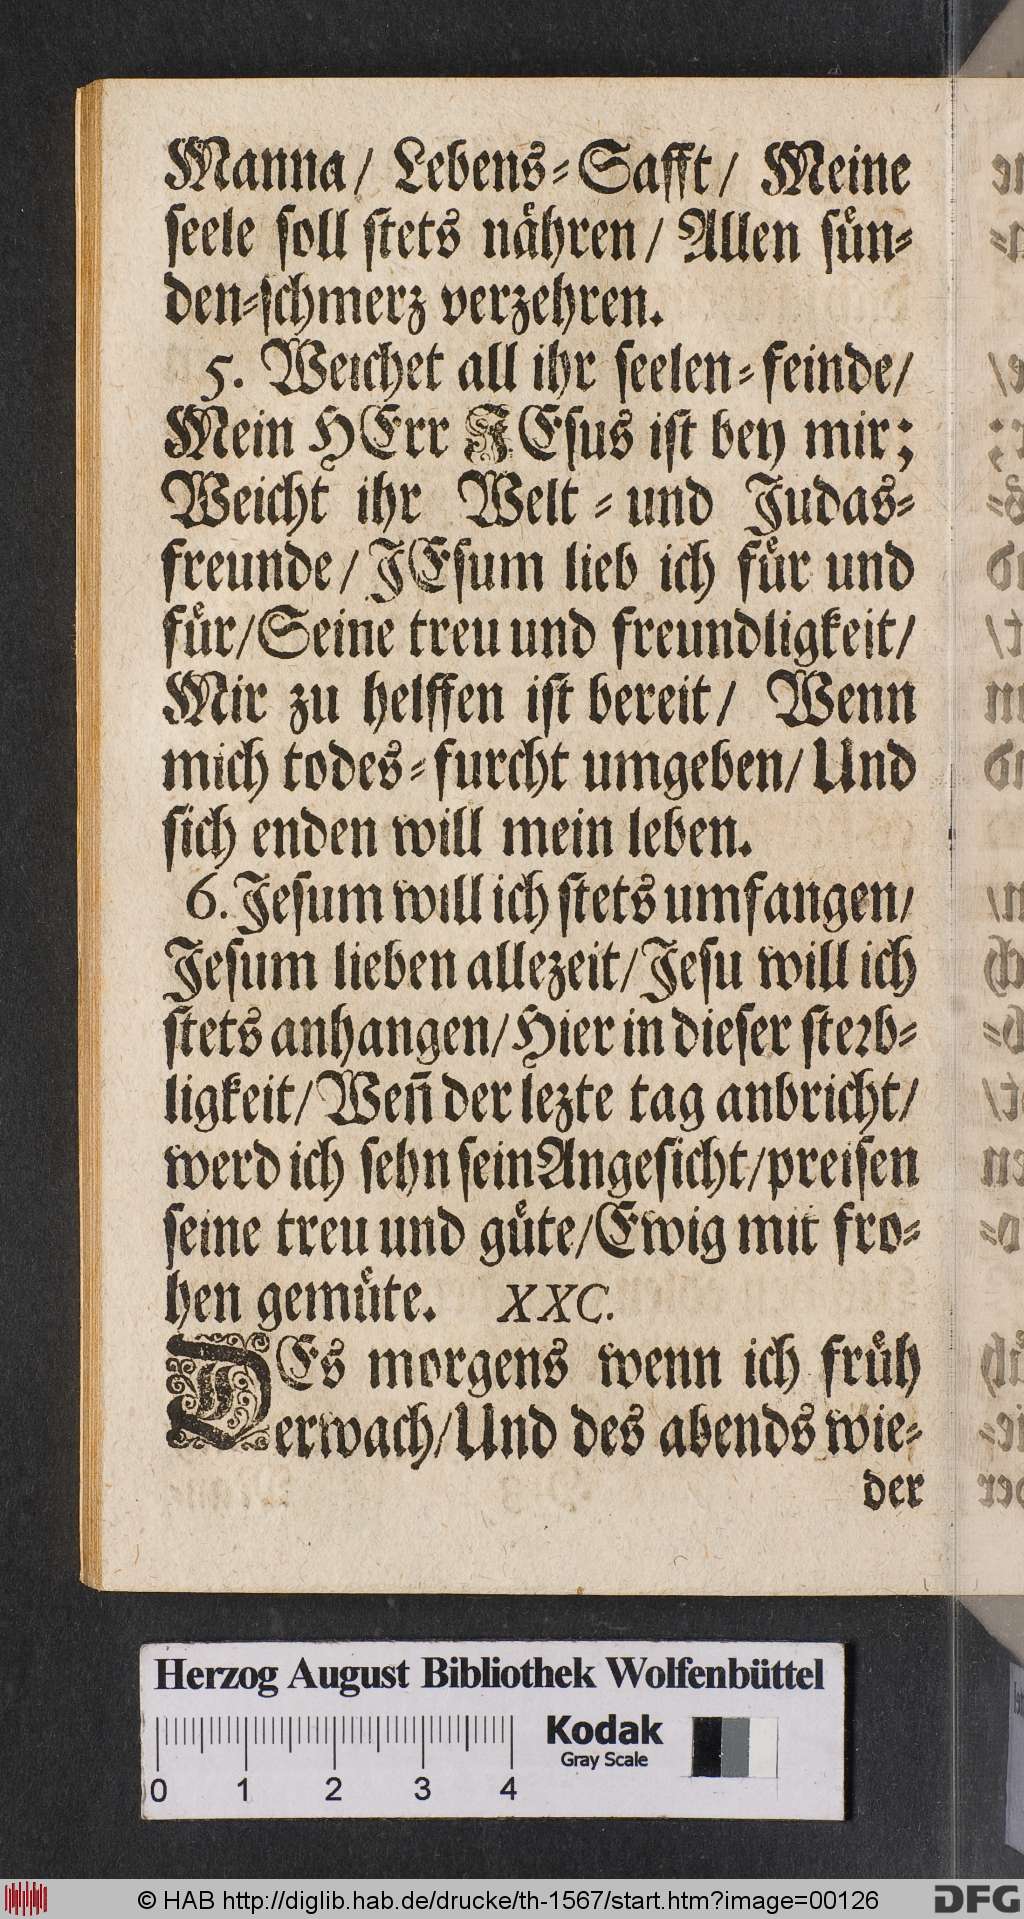 Manna/ Lebens-Safft/ Meine
seele soll stets nähren/ Allen sün-
den-schmerz verzehren.
5. Weichet all ihr seelen-feinde/
Mein HErr JEsus ist bey mir;
Weicht ihr Welt- und Judas-
freunde/ JEsum lieb ich für und
für/ Seine treu und freundligkeit/
Mir zu helffen ist bereit/ Wenn
mich todes-furcht umgeben/ Und
sich enden will mein leben.
6. Jesum will ich stets umfangen/
Jesum lieben allezeit/ Jesu will ich
stets anhangen/ Hier in dieser sterb-
ligkeit/ Weñ der lezte tag anbricht/
werd ich sehn sein Angesicht/ preisen
seine treu und güte/ Ewig mit fro-
hen gemüte. XXC.
DEs morgens wenn ich früh
erwach/ Und des abends wie-
der
Herzog August Bibliothek Wolfenbüttel
Kodak
Gray Scale
0 1 2 3 4
© HAB http://diglib.hab.de/drucke/th-1567/start.htm?image=00126
DFG